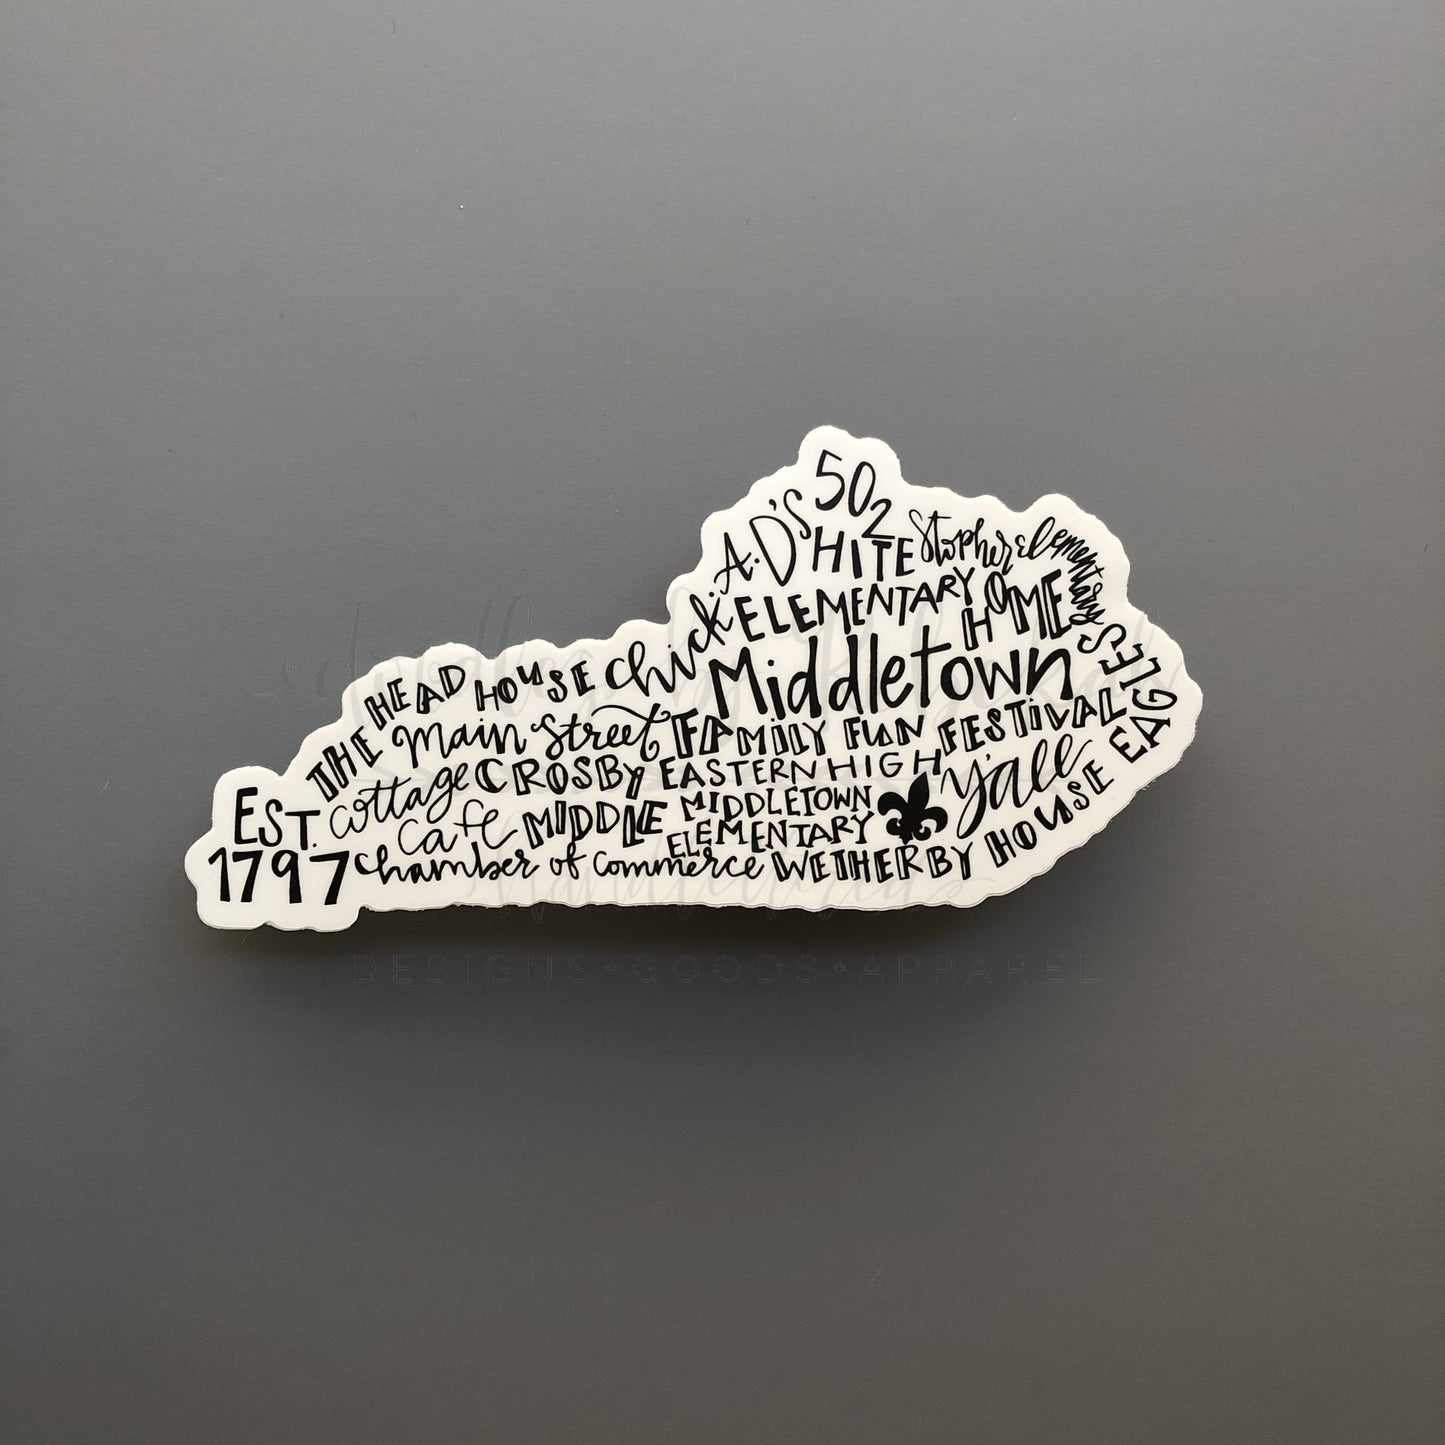 502
A.D'S
HITE
Stopher Elementary
ELEMENTARY
HOME
chick.
Middletown
THE HEAD HOUSE
Main Street
FAMILY FUN FESTIVAL
EAGLES
EST.
1797
cottage
cafe
CROSBY
MIDDLE
EASTERN HIGH
MIDDLETOWN
ELEMENTARY
y'all
chamber of commerce
WETHERBY HOUSE
DESIGNS+GOODS+APPAREL